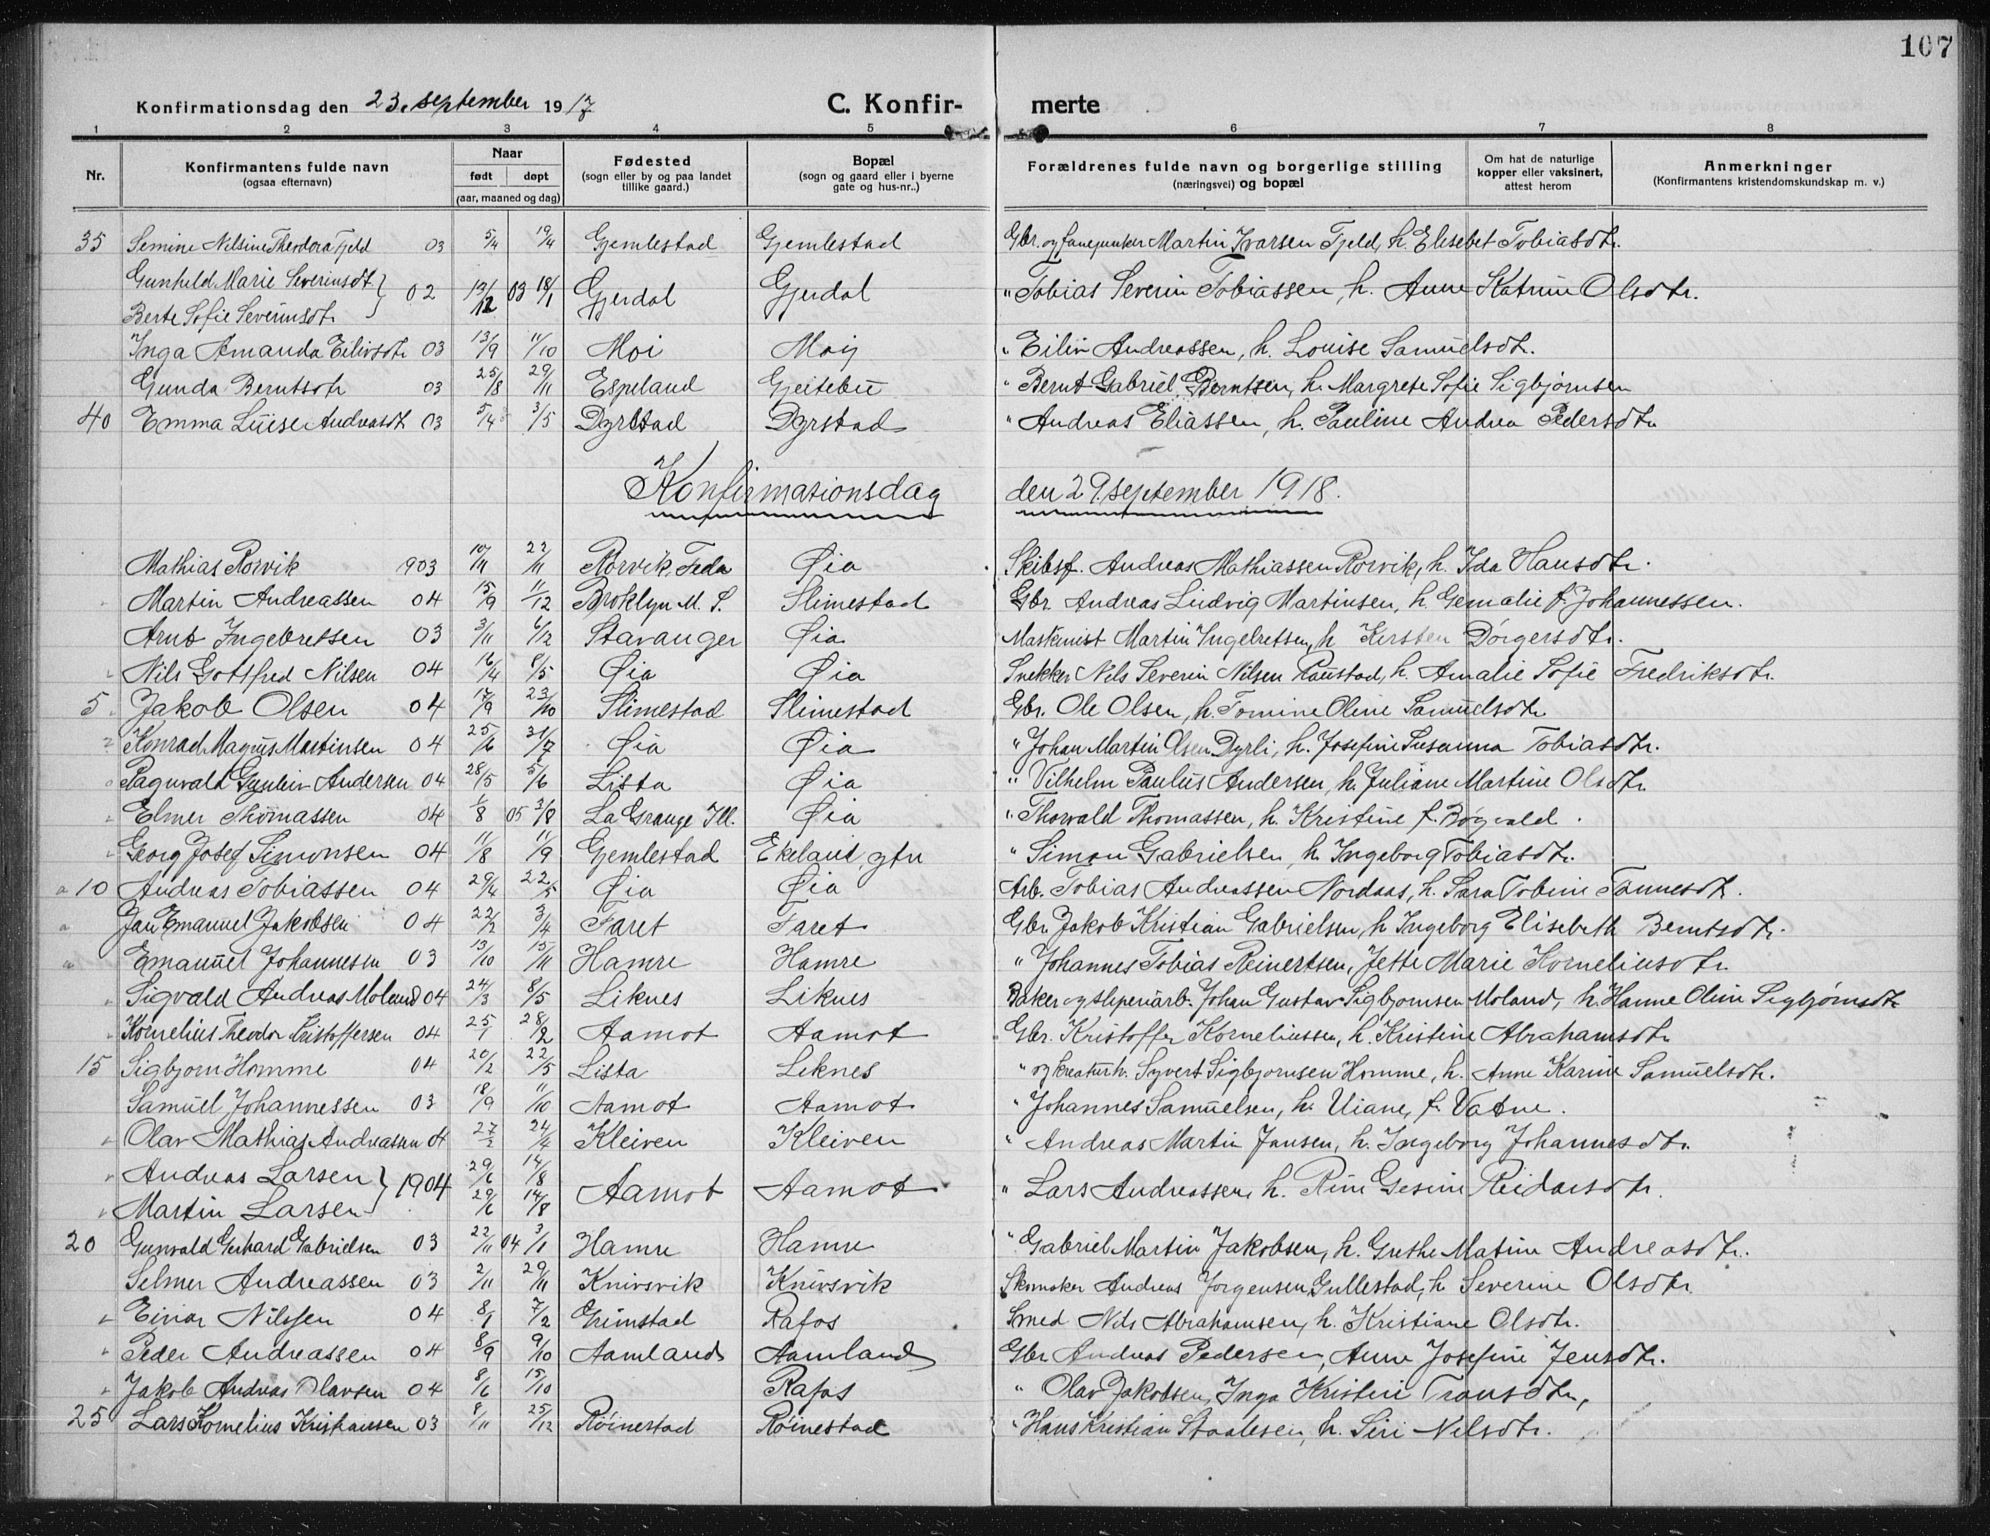 107
Konfirmationsdag den 23. september 1917 C. Konfir- merte
1 2 3 4 5 6 7 8
Nr. Konfirmantens fulde navn (ogsaa efternavn) Naar født døpt (aar, maaned og dag) Fødested (sogn eller by og paa landet tillike gaard.) Bopæl (sogn og gaard eller i byerne gate og hus-nr..) Forældrenes fulde navn og borgerlige stilling (næringsvei) og bopæl Om hat de naturlige kopper eller vaksinert, attest herom Anmerkninger (Konfirmantens kristendomskundskap m. v.)
35 Semine Nilsine Theodora Fjeld 03 5/4 19/4 Gjemlestad Gjemlestad Gbr. og fanejunker Martin Ivarsen Fjeld, h. Elisebet Tobiasdtr.
Gunhild Marie Severinsdt } 02 13/12 03 18/1 Gjerdal Gjerdal " Tobias Severin Tobiassen, h. Anne Katrine Olsdtr.
Berte Sofie Severinsdtr
Inga Amanda Eilivsdtr 03 13/9 11/10 Moi Moij " Eiliv Andreassen, h. Louise Samuelsdtr.
Gunda Berntsdtr 03 25/8 29/11 Espeland Gjeitebu " Bernt Gabriel Berntsen, h. Margrete Sofie Sigbjørnsen
40 Emma Luise Andreasdt. 03 5/4 3/5 Dyrstad Dyrstad " Andreas Eliassen, h. Pauline Andrea Pedersdtr
Konfirmationsdag den 29. september 1918.
Mathias Rørvik 1903 10/11 22/11 Rørvik, Feda Øia Skibsf. Andreas Mathiassen Rørvik, h. Ida Hansdtr.
Martin Andreassen 04 15/9 11/12 Broklyn M. S. Slimestad Gbr Andreas Ludvig Martinsen, h. Gemalie f. Johannessen.
Arnt Ingebretsen 03 3/11 6/12 Stavanger Øia Maskinist Martin Ingebretsen, h Kirsten Børgersdtr.
Nils Gottfred Nilsen 04 16/4 8/5 Øia Øia Snekker Nils Severin Nilsen Raustad, h. Amalie Sofie Fredriksdtr.
5 Jakob Olsen 04 17/9 23/10 Slimestad Slimestad Gbr. Ole Olsen, h. Tomine Oline Samuelsdtr
Konrad Magnus Martinsen 04 25/6 31/7 Øia Øia " Johan Martin Olsen Dyrli, h. Josefine Susanna Tobiasdtr.
Ragnvald Andersen 04 28/5 5/6 Lista Øia " Vilhelm Paulus Andersen, h. Juliane Martine Olsdtr
Elmer Thomassen 04 1/8 05 3/8 La Grange Ill. Øia " Thorvald Thomassen, h. Kristine f. Bøgvald.
Georg Josef Simonsen 04 11/8 11/9 Gjemlestad Ekeland ytre " Simon Gabrielsen, h. Ingeborg Tobiasdtr.
10 Andreas Tobiassen 04 29/4 22/5 Øia Øia Arb. Tobias Andreassen Nordaas, h. Sara Tobine Tønnesdtr.
Jan Emanuel Jakobsen 04 22/2 3/4 Faret Faret Gbr. Jakob Kristian Gabrielsen, h Ingeborg Elisebeth Berntsdtr.
Emanuel Johannesen 03 13/10 15/11 Hamre Hamre " Johannes Tobias Reinertsen, Jette Marie Korneliusdtr.
Sigvald Andreas Moland 04 24/3 8/5 Liknes Liknes Baker og sliperiarb. Johan Gustav Sigbjørnsen Moland, h. Hanne Oline Sigbjørnsdtr
Kornelius Theodor Kristoffersen 04 25/1 28/2 Aamot Aamot Gbr. Kristoffer Korneliussen, h. Kristine Abrahamsdtr.
15 Sigbjørn Homme 04 20/2 22/5 Lista Liknes " og kreaturh. Syvert Sigbjørnsen Homme, h. Anne Karine Samuelsdtr.
Samuel Johannessen 03 18/9 11/10 Aamot Aamot " Johannes Samuelsen, h. Uiane, f. Vatne.
Olav Mathias Andreassen 04 27/2 24/4 Kleiven Kleiven " Andreas Martin Jansen, h. Ingeborg Johannesdtr.
Andreas Larsen } 1904 29/6 14/8 Aamot Aamot " Lars Andreassen, h. Rine Gesine Reidarsdtr.
Martin Larsen 29/6 14/8
20 Gunvald Gerhard Gabrielsen 03 22/11 04 3/1 Hamre Hamre " Gabriel Martin Jakobsen, h. Grethe Matine Andreasdtr.
Selmer Andreassen 03 2/11 29/11 Knivsvik Knivsvik Skomaker Andreas Jørgensen Gullestad, h Severine Olsdtr.
Einar Nilssen 04 8/1 7/2 Grimstad Rafos Smed Nils Abrahamsen, h. Kristiane Olsdtr.
Peder Andreassen 04 8/9 9/10 Aamland Aamland Gbr Andreas Pedersen, Anne Josefine Jensdtr.
Jakob Andreas Olavsen 04 8/6 15/10 Rafos " Olav Jakobsen, Inga Kristine Transdtr,
25 Lars Kornelius Kristiansen 03 8/11 25/12 Røinestad Røinestad " Hans Kristian Staalesen, h. Siri Nilsdtr.